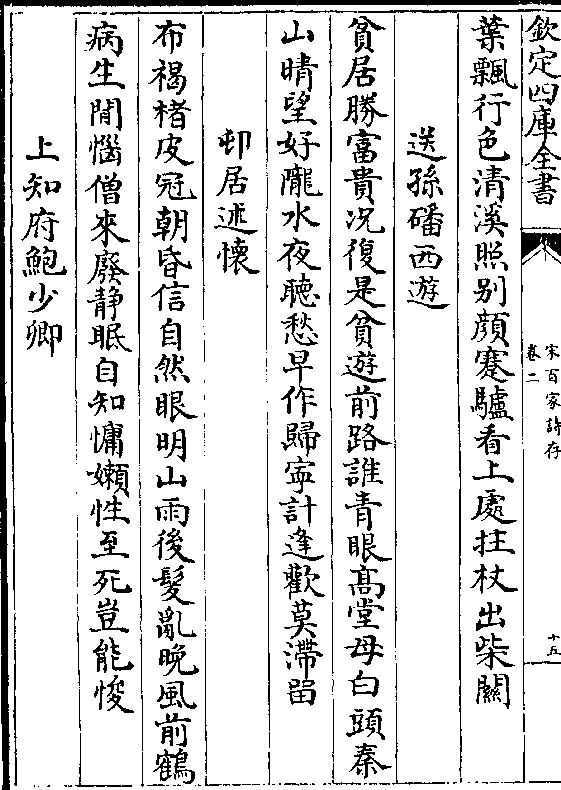 欽定四庫全書
宋百家詩存
卷二
十五
葉飄行色清溪照别顔蹇驢看上處拄杖出柴關
送孫磻西遊
貧居勝富貴况復是貧遊前路誰青眼髙堂母白頭秦
山晴望好隴水夜聽愁早作歸寧計逢歡莫滯留
邨居述懷
布褐楮皮冠朝昏信自然眼明山雨後髮亂晚風前鶴
病生閒惱僧來廢静眠自知慵嬾性至死豈能悛
上知府鮑少卿